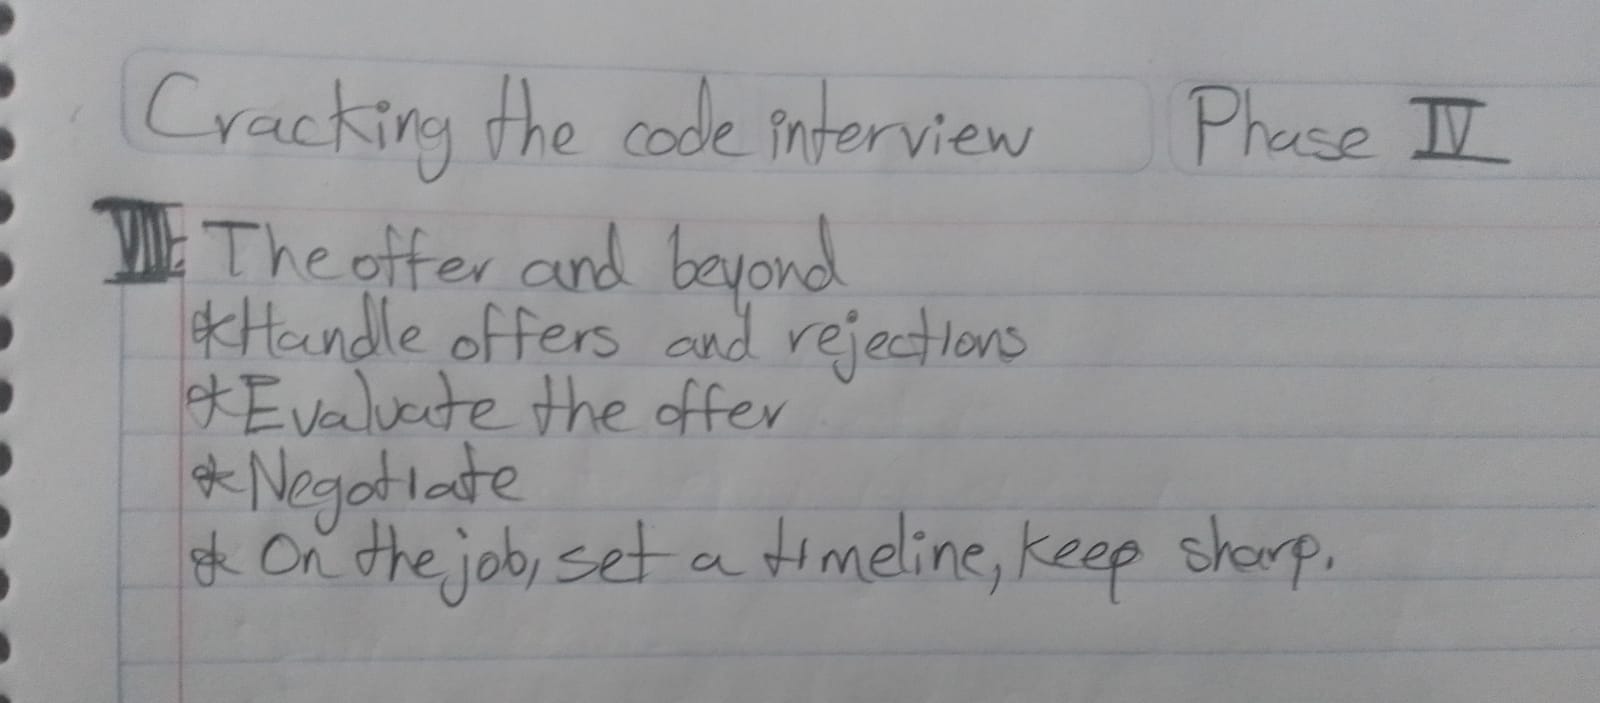 Cracking the code interview Phase IV
VIII: The offer and beyond
*Handle offers and rejections
*Evaluate the offer
*Negotiate
* On the job, set a timeline, keep sharp.